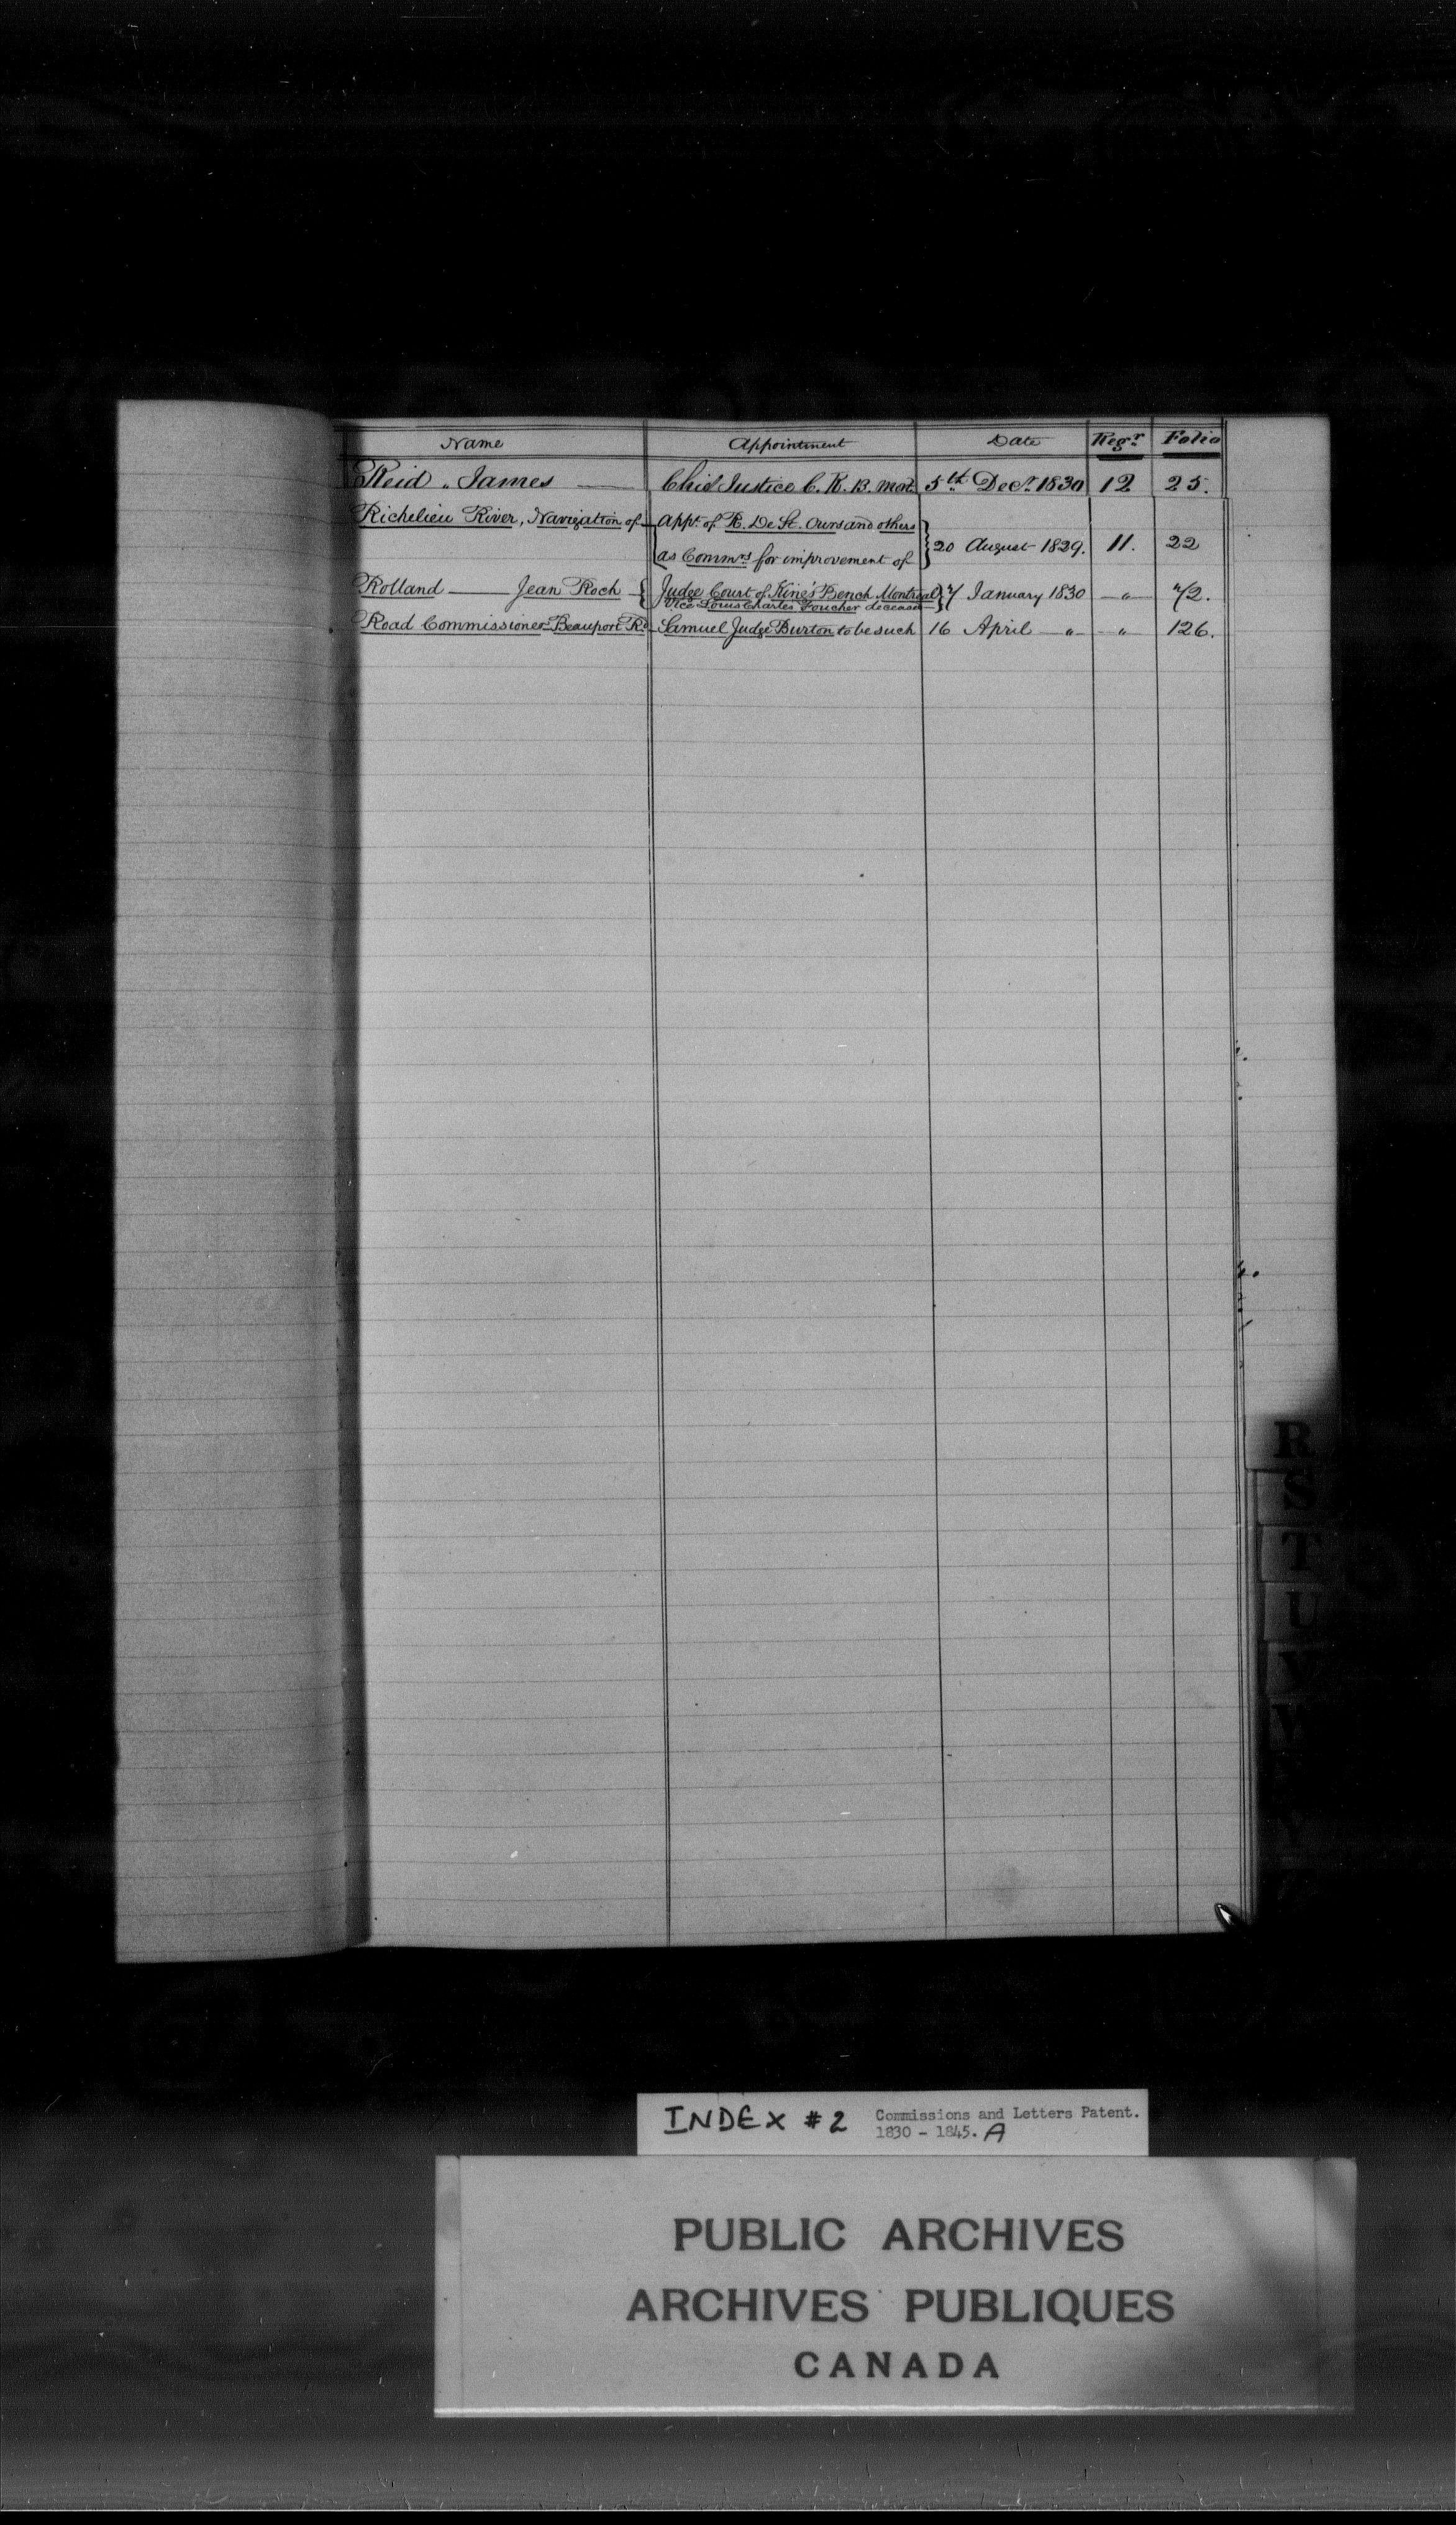 Name Appointment Date Regr Folio
Reid „ James — Chief Justice C. K. B. Mont. 5th Decr. 1830 12 25.
Richelieu River, Navigation of — Appt. of R. De St. Ours and others
as Commrs for improvement of 20 August 1829. 11. 22
Rolland — Jean Roch — Judge Court of King's Bench Montreal 7 January 1830 — „ — 72.
Vice Louis Charles Foucher deceased
Road Commissioner Beauport Rd. — Samuel Judge Burton to be such 16 April — „ — — „ — 126.
R
S
T
U
V
W
Y
INDEX #2 Commissions and Letters Patent.
1830 - 1845. A
PUBLIC ARCHIVES
ARCHIVES PUBLIQUES
CANADA